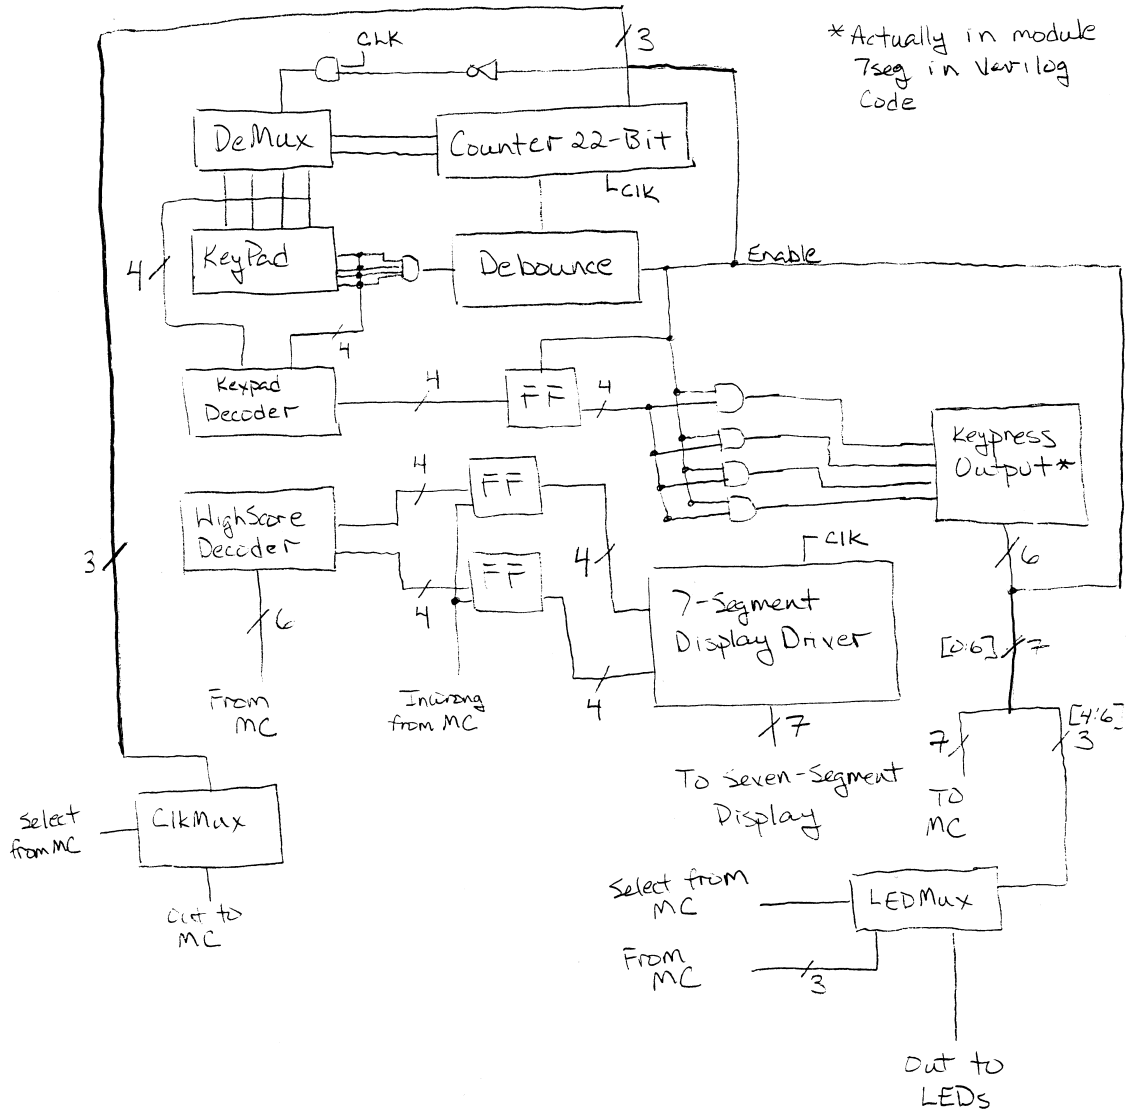 * Actually in module
7seg in Verilog
Code
CLK
3
DeMux
Counter 22-Bit
Clk
4
KeyPad
Debounce
Enable
4
Kexpad
Decoder
4
FF
4
Keypress
Output*
4
FF
HighScore
Decoder
3
4
FF
4
Clk
6
6
7-Segment
Display Driver
[0:6] 7
From
MC
Inwrong
from MC
4
7
7
[4:6]
3
To Seven-Segment
Display
TO
MC
Select
from MC
ClkMux
Out to
MC
Select from
MC
LEDMux
From
MC
3
Out to
LEDs